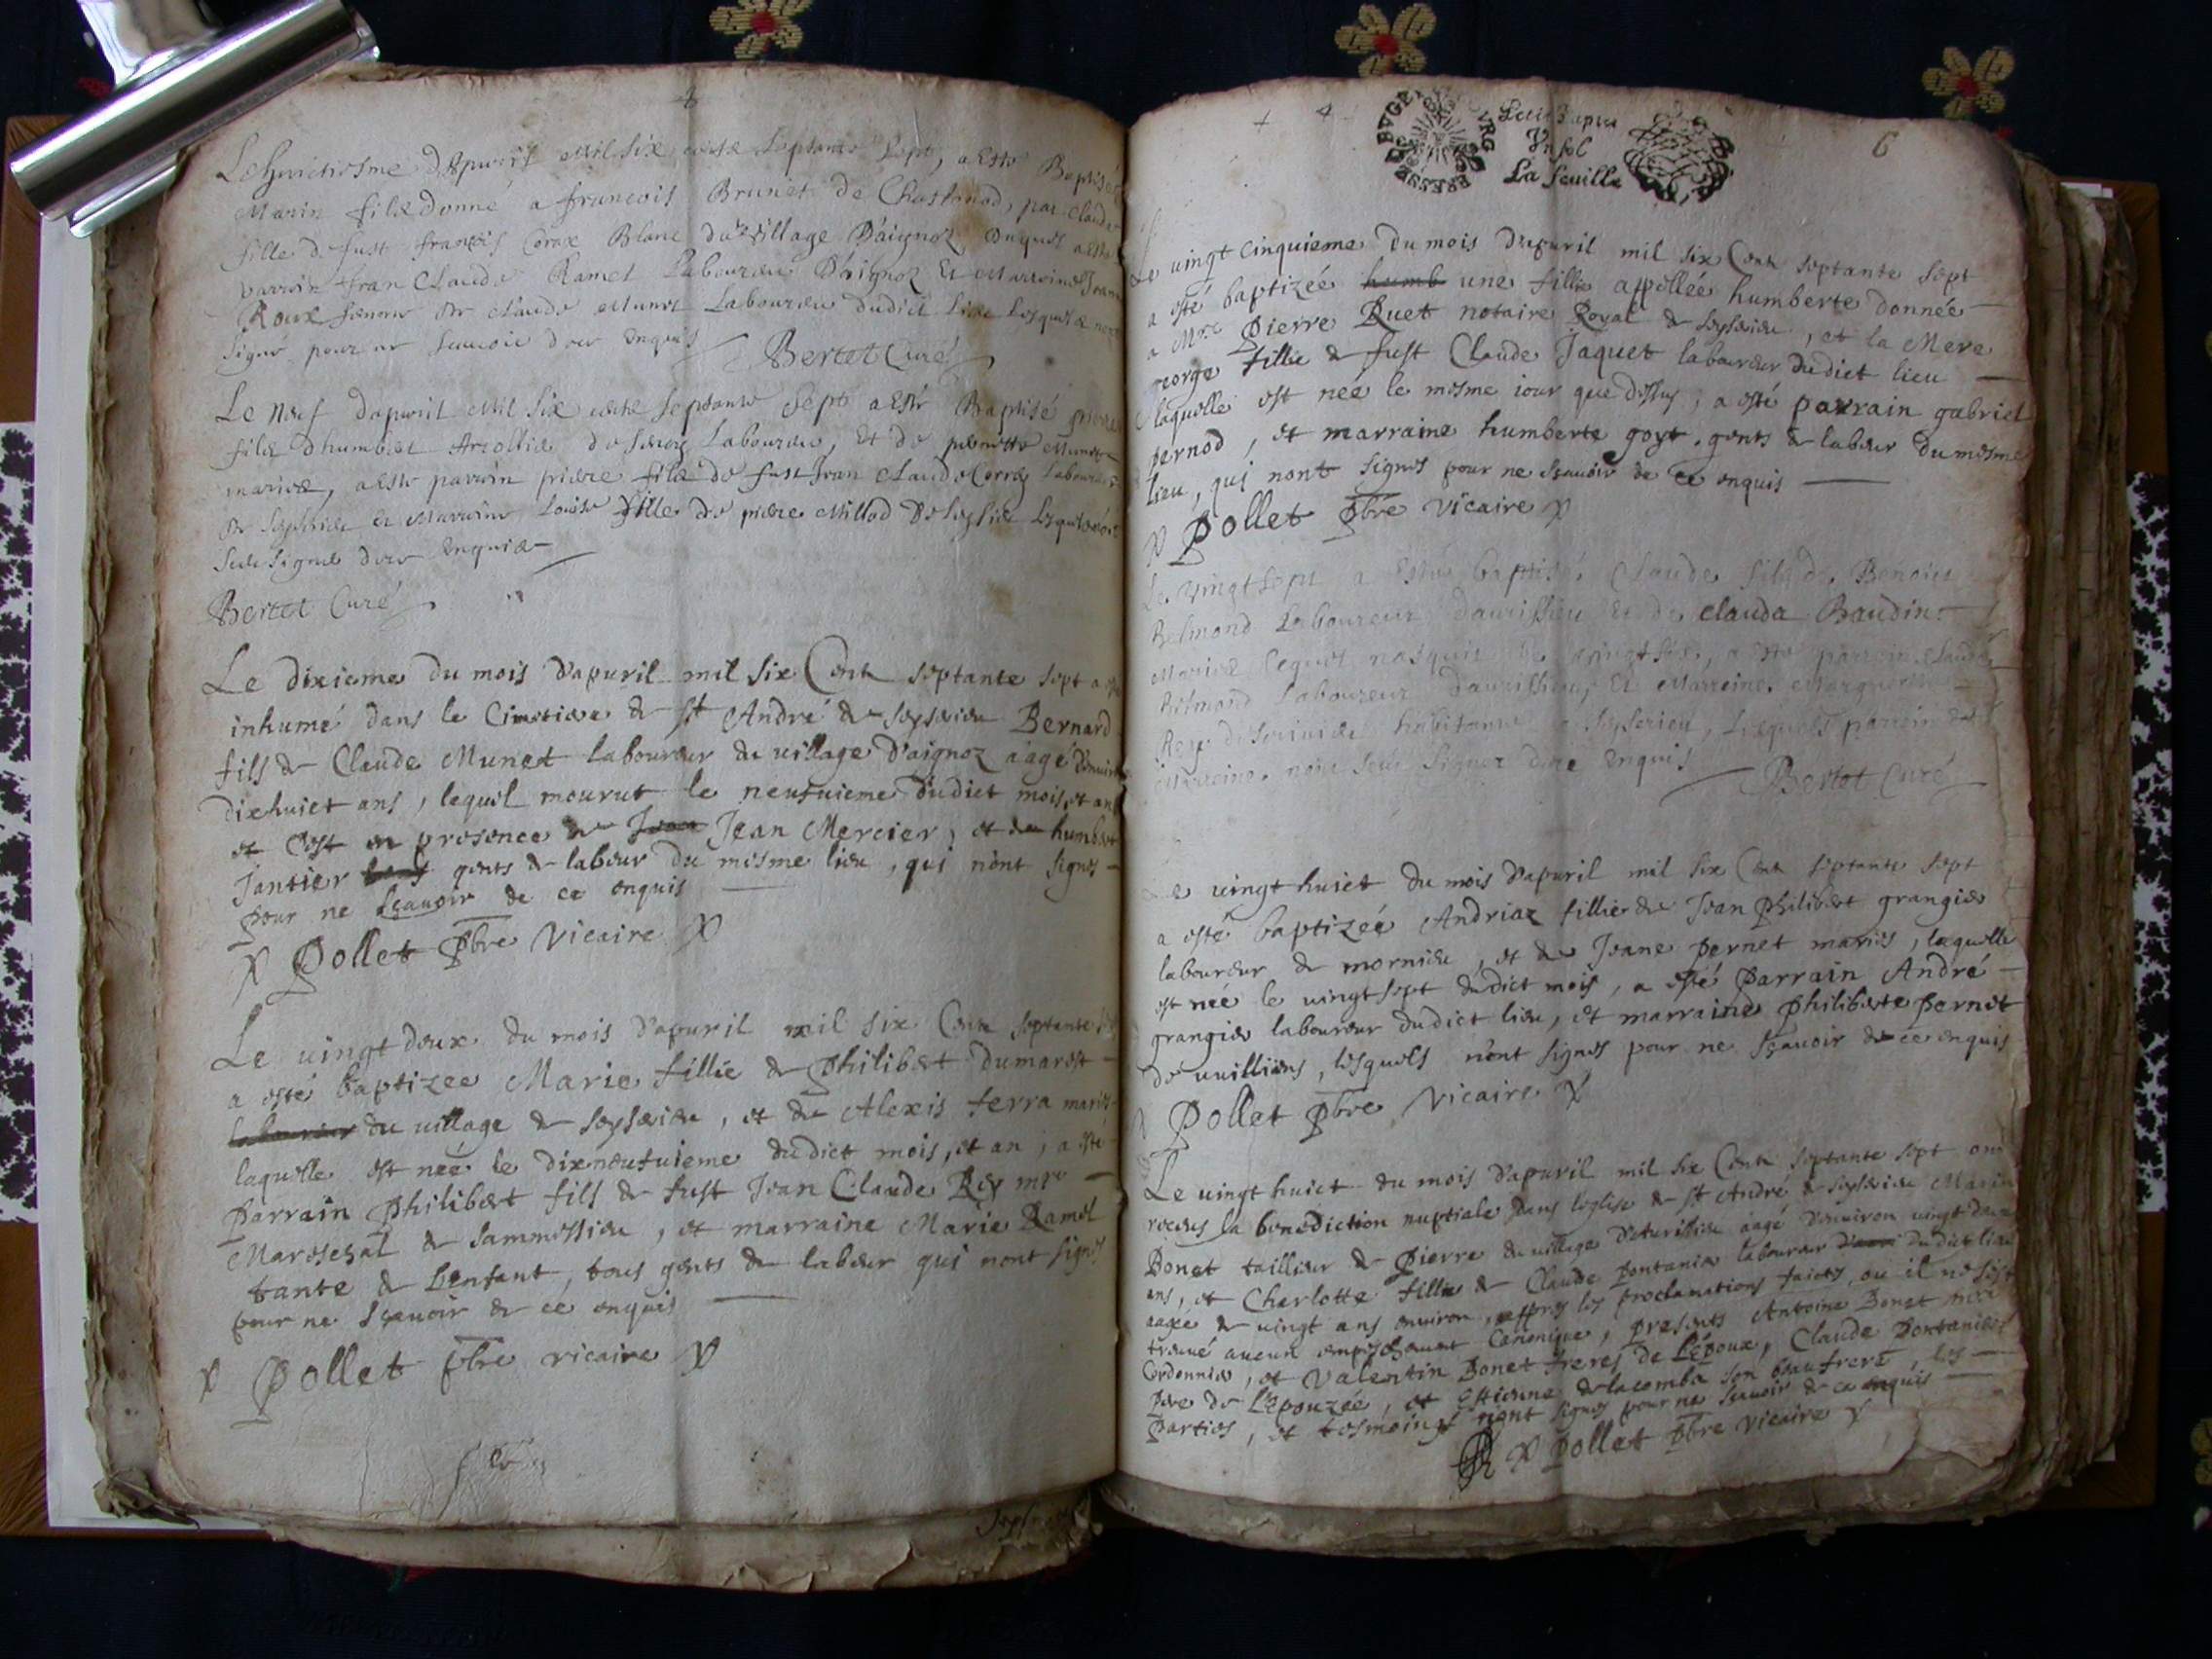 Le huictiesme d'Apuril Mil six cents septante sept, a esté Baptisé
Marin fils donné a francois Brunet de Chastonod, par Claude
fille de fust francois Corax Blanc du village D'aignoz duquel a esté
parrin Jean Claude Ramel Laboureur D'aignoz Et Marrine
Roux femme de Claude Munet Laboureur dudict Lieu Lesquels
signé pour ne scauoir de ce enquis Bertet Curé
Le Neuf d'apuril Mil Six cents septante Sept a esté Baptisé pierre
fils d'humbert Labourer, Et de pernette Munet
mariez, a esté parrin pierre fils de fust Jean Claude Laboureur
de seyserieu et Marrine Louise fille de piere Millod De seyserieu
signé de ce Enquis
Bertet Curé
Le dixieme du mois d'apuril mil six Cent septante sept a esté
inhumé dans le Cimetiere de St André de seyserieu Bernard
fils de Claude Munet laboureur du village D'aignoz aagé d'enuiron
dixhuict ans, lequel mourut le neufuieme dudict mois, et an
et c'est en presence de Jean Mercier, et de humbert
Jantier gents de labeur du mesme lieu, qui n'ont signes
pour ne sçauoir de ce enquis
Pollet pbre vicaire
Le uingt deux du mois d'apuril mil six Cent septante
a esté baptizee Marie fillie de philibert dumarest
laboureur du uillage de seyserieu, et de Alexis ferra mariés
laquelle est neé le dixneufuieme dudict mois, et an, a esté
parrain philibert fils de fust Jean Claude Rey mre
Mareschal de sammessieu, et marraine Marie Ramel
tante de l'enfant, tous gents de labeur qui n'ont signes
pour ne sçauoir de ce enquis
Pollet pbre vicaire
Petit Papier
Un sol
La feuille
6
Le uingt cinquieme du mois d'apuril mil six Cent septante sept
a esté baptizée humb une fillie appellée humberte donnée
a Mre Pierre Ruet notaire Royal de seyserieu, et la Mere
george fillie de fust Claude Jaquet laboureur dudict lieu
laquelle est neé le mesme iour que dessus, a esté parrain gabriel
pernod, et marraine humberte goyt, gents de labeur du mesme
lieu, qui nont signes pour ne sçauoir de ce enquis
Pollet pbre vicaire
Le vingt sept a esté baptisé Claude fils de Benoict
Belmond Laboureur d'aurissieu Et de Clauda Baudin
Mariez lequel nasquit le vingt six, a esté parrein Claude
Belmond Laboureur d'aurissieu, Et Marreine Marguerite
Rey habitante a Seyserieu, lesquels parrein et
Marreine n'ont sceu signer de ce Enquis Bertet Curé
Le uingt huict du mois d'apuril mil six Cent septante sept
a esté baptizeé Andriaz fillie de Jean philibert grangier
laboureur de mornieu, et de Jeane pernet mariés, laquelle
est neé le uingt sept dudict mois, a esté parrain André
grangier laboureur dudict lieu, et marraine philiberte pernet
de uuilliens, lesquels n'ont signes pour ne sçauoir de ce enquis
Pollet pbre vicaire
Le uingt huict du mois d'apuril mil six Cent septante sept ont
receus la benediction nuptiale dans l'eglise de St André de seyserieu Marin
Bonet taillieur de pierre du uillage d'aturissieu aagé d'enuiron uingt deux
ans, et Charlotte fillie de Claude pontanier laboureur dudict lieu
aagée de uingt ans enuiron, appres les proclamations faictes, ou il ne s'est
treuué aucun empeschement Canonique, presents Antoine Bonet mre
Cordonnier, et Valentin Bonet freres de l'époux, Claude pontanier
pere de l'epouzée, et Estienne delacomba son beaufrere, les
parties, et tesmoins n'ont signes pour ne sçauoir de ce enquis
Pollet pbre vicaire